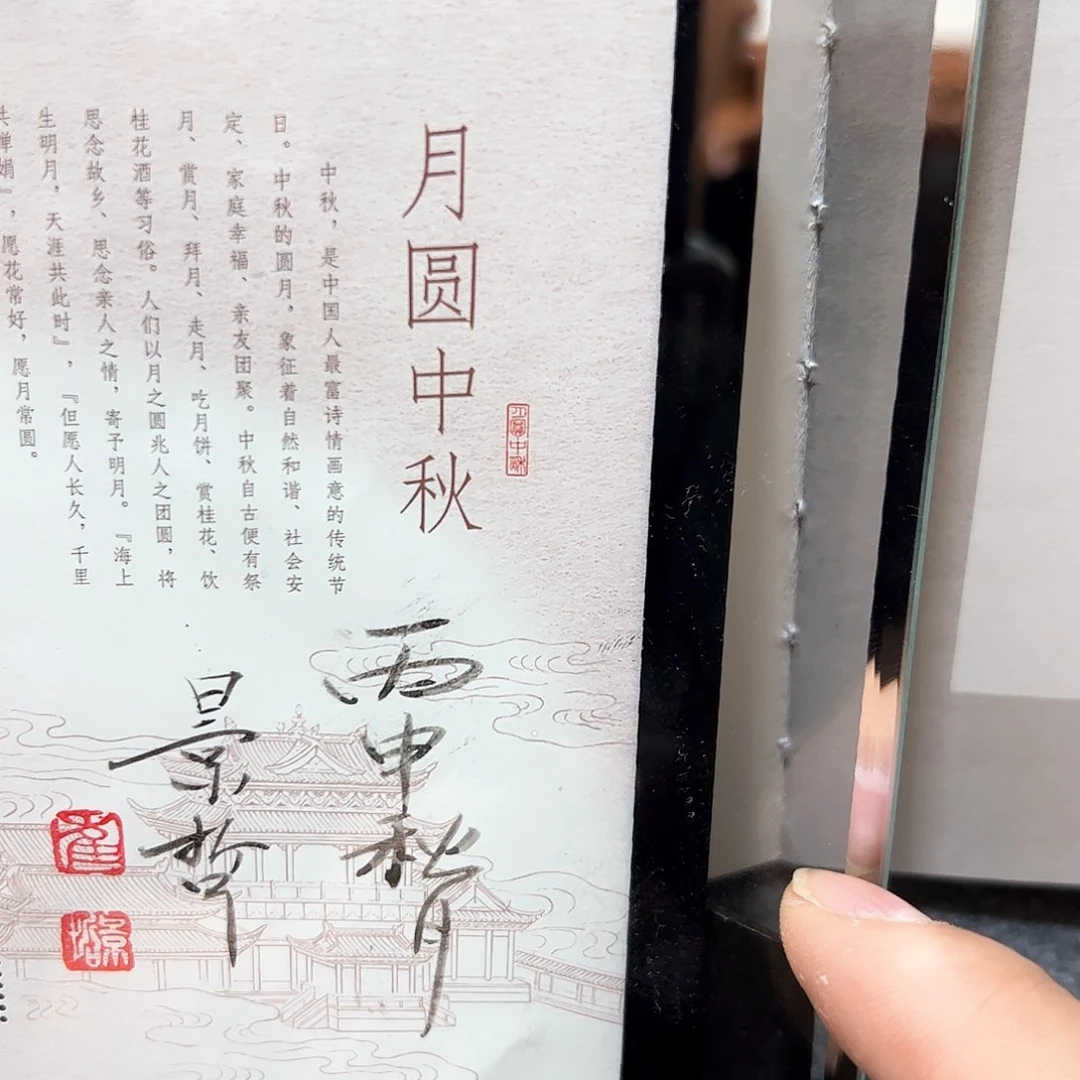 月圆中秋
月圆中秋
中秋，是中国人最富诗情画意的传统节
日。中秋的圆月，象征着自然和谐、社会安
定、家庭幸福、亲友团聚。中秋自古便有祭
月、赏月、拜月、走月、吃月饼、赏桂花、饮
桂花酒等习俗。人们以月之圆兆人之团圆，将
思念故乡、思念亲人之情，寄予明月。『海上
生明月，天涯共此时』，『但愿人长久，千里
共婵娟』，愿花常好，愿月常圆。
丙申秋月
景哲